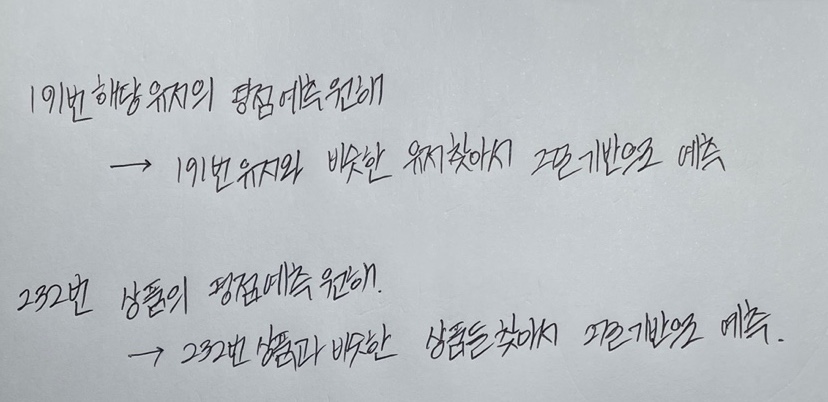 191번 해당 유저의 평점예측 원해
→ 191번 유저와 비슷한 유저 찾아서 그걸 기반으로 예측
232번 상품의 평점예측 원해.
→ 232번 상품과 비슷한 상품들 찾아서 그걸 기반으로 예측.